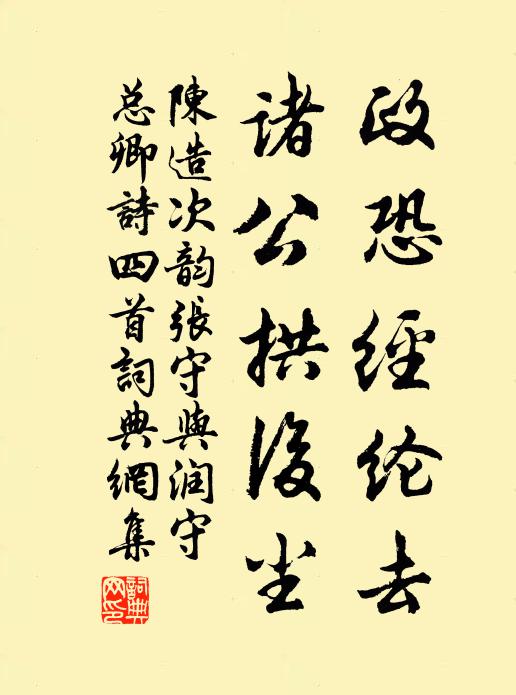 政恐經纶去
諸公拱後尘
陳造次韵張守與润守
总卿詩四首詞典網集
詞典网印